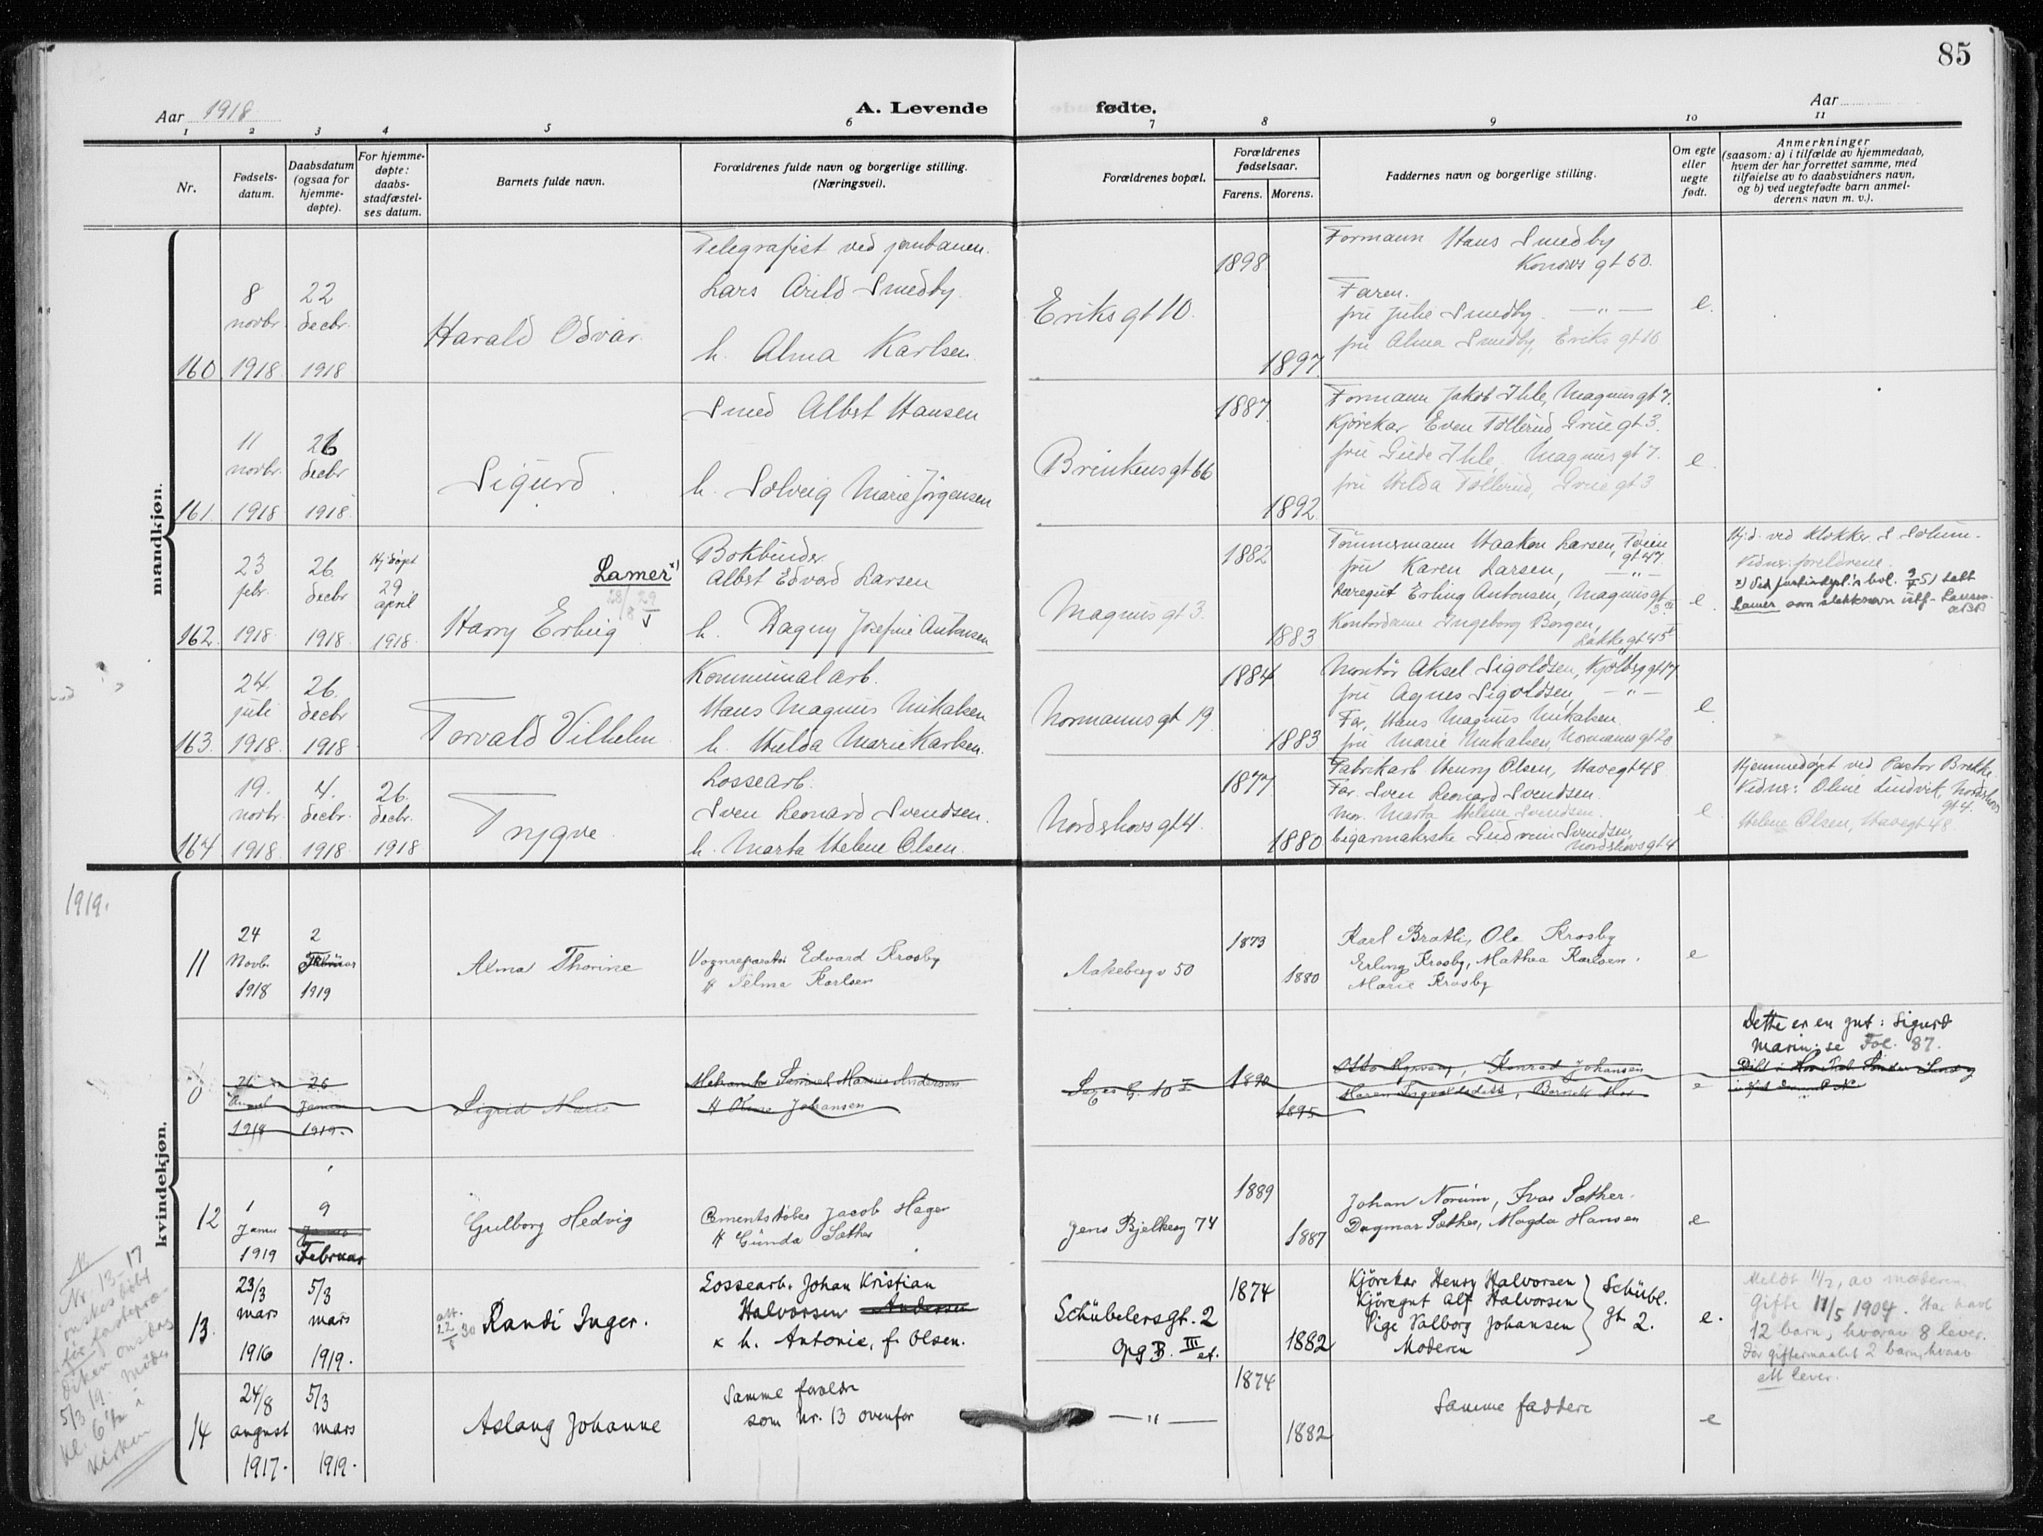 85
Aar 1918
A. Levende
fødte.
Aar
1 2 3 4 5 6 7 8 9 10 11
Nr.
Fødsels-
datum.
Daabsdatum
(ogsaa for
hjemme-
døpte).
For hjemme-
døpte:
daabs-
stadfæstel-
ses datum.
Barnets fulde navn.
Forældrenes fulde navn og borgerlige stilling.
(Næringsvei).
Forældrenes bopæl.
Forældrenes
fødselsaar.
Farens. Morens.
Faddernes navn og borgerlige stilling.
Om egte
eller
uegte
født.
Anmerkninger
(saasom: a) i tilfælde av hjemmedaab,
hvem der har forrettet samme, med
tilføielse av to daabsvidners navn,
og b) ved uegtefødte barn anmel-
derens navn m. v.).
mandkjøn.
160
8
novbr.
1918
22
decbr.
1918
Harald Odvar
Telegrafist ved jernbanen.
Lars Arild Smedby.
h. Alma Karlsen.
Eriks gt 10.
1898
1897.
Formann Hans Smedby
Konows gt 50.
Faren.
fru Julie Smedby. — " —
fru Alma Smedby, Eriks gt 10
e.
161.
11
novbr.
1918
26
decbr
1918
Sigurd
Smed Albert Hansen
h. Solveig Marie Jørgensen
Brinkens gt 66
1887.
1892
Formann Jakob Ihle, Magnus gt 7.
Kjørekar Even Tollerud Grue gt 3.
fru Ihle, Magnus gt 7.
fru Hilda Tollerud, Grue gt 3
e.
162.
23
febr.
1918
26
decbr
1918
Hj.døpt
29
april
1918
Lamer x)
Harry Erling
Bokbinder
Albert Edvard Larsen
h. Dagny Josefine Antonsen
Magnus gt 3.
1882
1883
Tømmermann Haakon Larsen, Tøien
gt 47.
fru Karen Larsen, — " —
Læregut Erling Antonsen, Magnus gt
Kontordame Ingeborg Bergen,
Lakkegt 45
e.
Hj.d. ved klokker S Solum.
Vidner: foreldrene.
Lamer som slektsnavn istf. Larsen
163.
24.
juli
1918.
26.
decbr
1918
Torvald Vilhelm
Kommunal arb.
Hans Magnus Mikalsen
h. Hulda Marie Karlsen.
Normanns gt 19
1884
1883
Montør Aksel Sigoldsen, Kjølberg gt 17
fru Agnes Sigoldsen, — " —
Far, Hans Magnus Mikalsen.
fru Marie Mikalsen, Normanns gt 20
e
164
19.
novbr.
1918
4.
decbr.
1918
26.
decbr.
1918
Trygve
Lossearb.
Sven Leonard Svendsen.
h. Marta Helene Olsen.
Nordshovs gt 4.
1877
1880
Fabrikarb Henry Olsen, Havegt 48
Far. Sven Leonard Svendsen.
Mor. Marta Helene Svendsen.
Cigarmakerske Gudrun Svendsen,
Nordshovs gt 4
e
Hjemmedøpt ved Pastor Brekke
Vidner: Oline Lindvik, Nordshovs
gt 4.
Helene Olsen, Havegt 48
1919.
kvindekjøn.
11
24
Novb.
1918
2
Februar
1919
Alma Thorine
Vognreparatør Edvard Krosby
H Telma Karlsen
Aakeberg v 50
1873
1880
Karl Bratli, Ole Krosby
Erling Krosby, Mathea Karlsen.
Marie Krosby
e
0
26
1918
26
Januar
1919.
Sigrid Marie
H Oline Johansen
1890
1895
Konrad Johansen
e
Dette er en gut: Sigurd
Marin: se Fol. 87.
12
1
Janu
1919
9
Februar
Gulborg Hedvig
Cementstøber Jacob Hager
H Gunda Sæther
Jens Bjelkesg 74
1889
1887
Johan Norum, Ivar Sæther.
Dagmar Sæther, Magda Hansen
e
13.
23/3
mars
1916
5/3
mars
1919.
att.
22/8 30
Randi Inger.
Lossearb. Johan Kristian
Halvorsen Andersen
x h. Antonie, f. Olsen.
Schübelersgt. 2
Opg B. III
et.
1874
1882
Kjørekar Henry Halvorsen
Kjøregut Alf Halvorsen
Pige Valborg Johansen
Moderen
Schübl.
gt 2.
e.
Meldt 11/2, av moderen
Gifte 11/5 1904. Har havt
12 barn, hvorav 8 lever.
Før giftermaalet 2 barn, hvorav
ett lever.
14
24/8
august
1917.
5/3
mars
1919.
Aslaug Johanne
Samme foreldre
som nr. 13 ovenfor
— " —
1874
1882
Samme faddere
e
Nr. 13–17
ønskes døbt
onsdag
5/3 19. Møder
kl. 6 i
Kirken